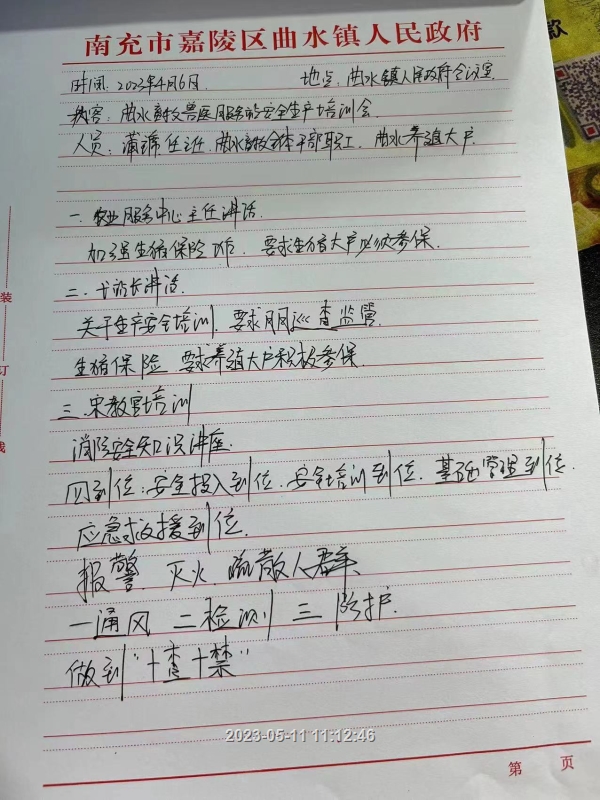 南充市嘉陵区曲水镇人民政府
时间：2023年4月6日 地点：曲水镇人民政府会议室
内容：曲水畜牧兽医服务站安全生产培训会
人员：蒲 主任、曲水畜牧全体干部职工、曲水养殖大户
一、农业服务中心主任讲话
加强生猪保险 ，要求生猪大户必须参保。
二、 站长讲话
关于生产安全培训，要求 巡查监管
生猪保险，要求养殖大户积极参保
三、宋教官培训
消防安全知识讲座
四到位：安全投入到位、安全培训到位、基础管理到位
应急救援到位
报警、灭火、疏散人群、
一通风 二检测 三防护
做到“十查十禁”
装
订
线
2023-05-11 11:12:46
第 页
款